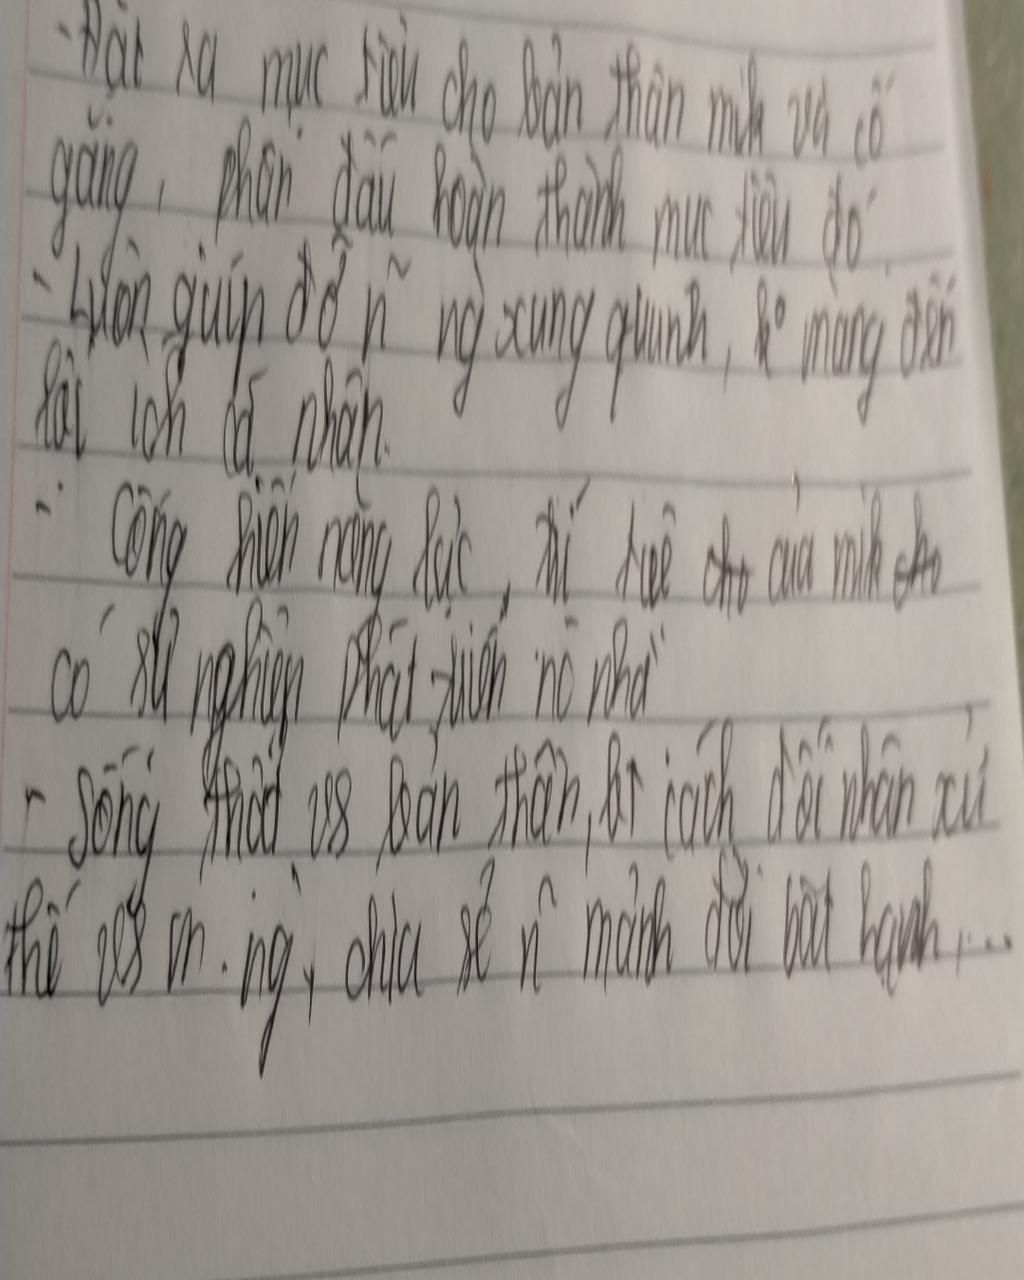 - Đặt ra mục tiêu cho bản thân mik và cố
gắng, phấn đấu hoàn thành mục tiêu đó
- Luôn giúp đỡ n~ ng xung quanh, k mang đến
lợi ích cá nhân.
- Cống hiến năng lực, trí tuệ của mik
có sự nghiệp phát triển nc nhà
- Sống thật vs bản thân, bt cách đối nhân xử
thế vs m.ng, chia sẻ n~ mảnh đời bất hạnh,...